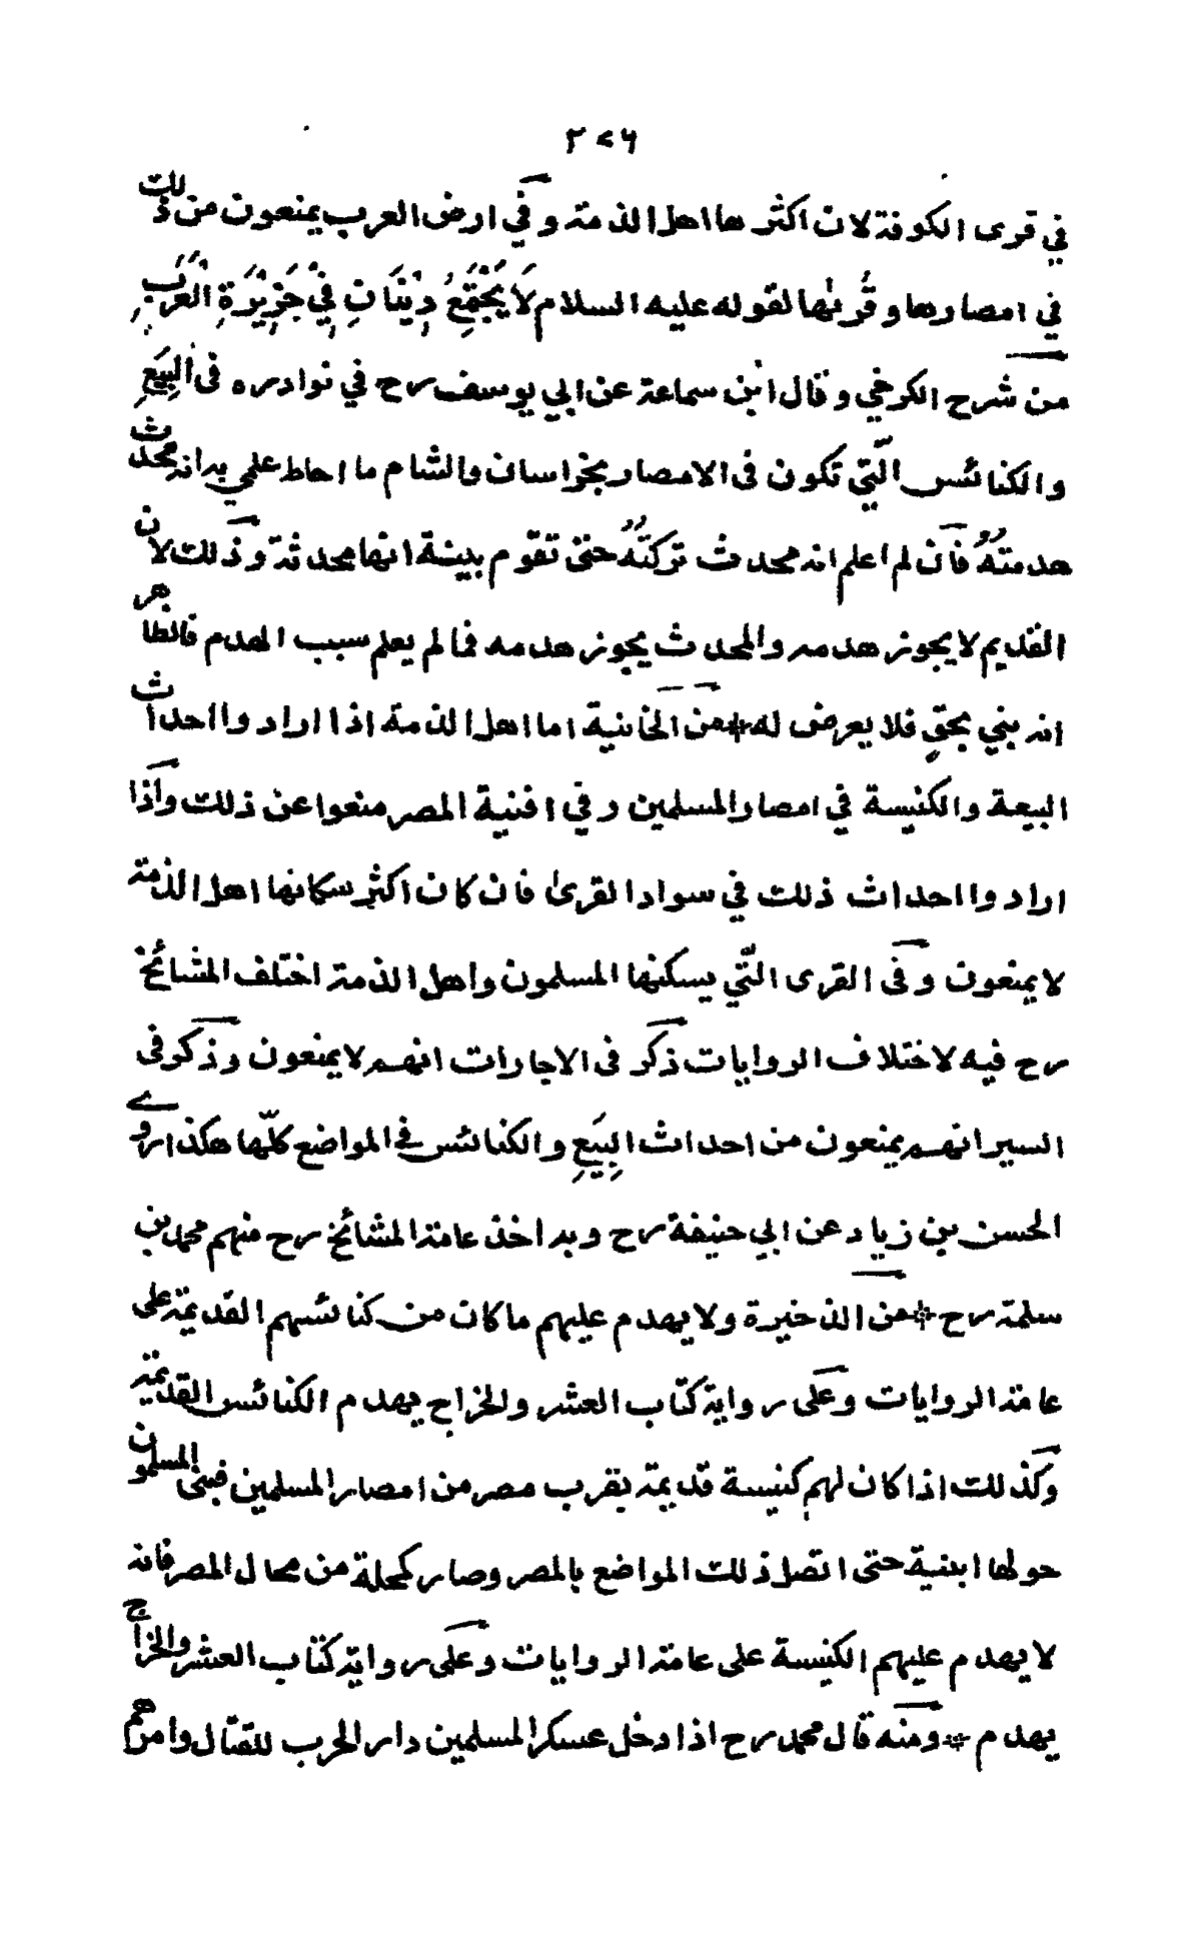 ٢٧٦
في قرى الكوفة لان اكثرها اهل الذمة وفي ارض العرب يمنعون من ذلك
في امصارها وقُرٰىها لقوله عليه السلام لَا يَجْتَمِعُ دِيْنَانِ فِيْ جَزِيْرَةِ الْعَرَبِ
من شرح الكرخي وقال ابن سماعة عن ابي يوسف رح في نوادره فى البِيَعِ
والكنائس الّتي تكون فى الامصار بخراسان والشام ما احاط علمي به انه محدث
هدمتُهُ فان لم اعلم انه محدث تركتُهُ حتى تقوم بينة انها محدثة وذلك لان
القديم لا يجوز هدمه والمحدث يجوز هدمه فما لم يعلم سبب الهدم فالظاهر
انه بني بحقٍ فلا يعرض له * من الخانية اما اهل الذمة اذا ارادوا احداث
البيعة والكنيسة في امصار المسلمين وفي افنية المصر منعوا عن ذلك واذا
ارادوا احداث ذلك في سواد القرىٰ فان كان اكثر سكانها اهل الذمة
لا يمنعون وفى القرى الّتي يسكنها المسلمون واهل الذمة اختلف المشائخ
رح فيه لاختلاف الروايات ذكر فى الاجارات انهم لا يمنعون وذكر فى
السير انهم يمنعون من احداث البِيَعِ والكنائس في المواضع كلّها هكذا روى
الحسن بن زياد عن ابي حنيفة رح وبه اخذ عامة المشائخ رح منهم محمد بن
سلمة رح * من الذخيرة ولا يهدم عليهم ما كان من كنائسهم القديمة على
عامة الروايات وعلى رواية كتاب العشر والخراج يهدم الكنائس القديمة
وكذلك اذا كان لهم كنيسة قديمة بقرب مصر من امصار المسلمين فبنى المسلمون
حولها ابنية حتى اتصل ذلك المواضع بالمصر وصار كمحلة من محال المصر فانه
لا يهدم عليهم الكنيسة على عامة الروايات وعلى رواية كتاب العشر والخراج
يهدم * ومنه قال محمد رح اذا دخل عسكر المسلمين دار الحرب للقتال وامرهم